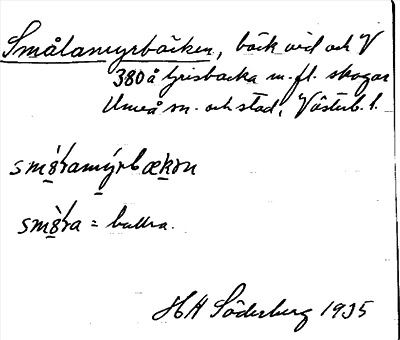 Smålamyrbäcken, bäck vid och V
380 å Grisbacka m.fl. skogar
Umeå sn. och stad, Västerb. l.
smo̲l̀ramýrbæk̲ən
= bullra.
HH Söderberg 1935